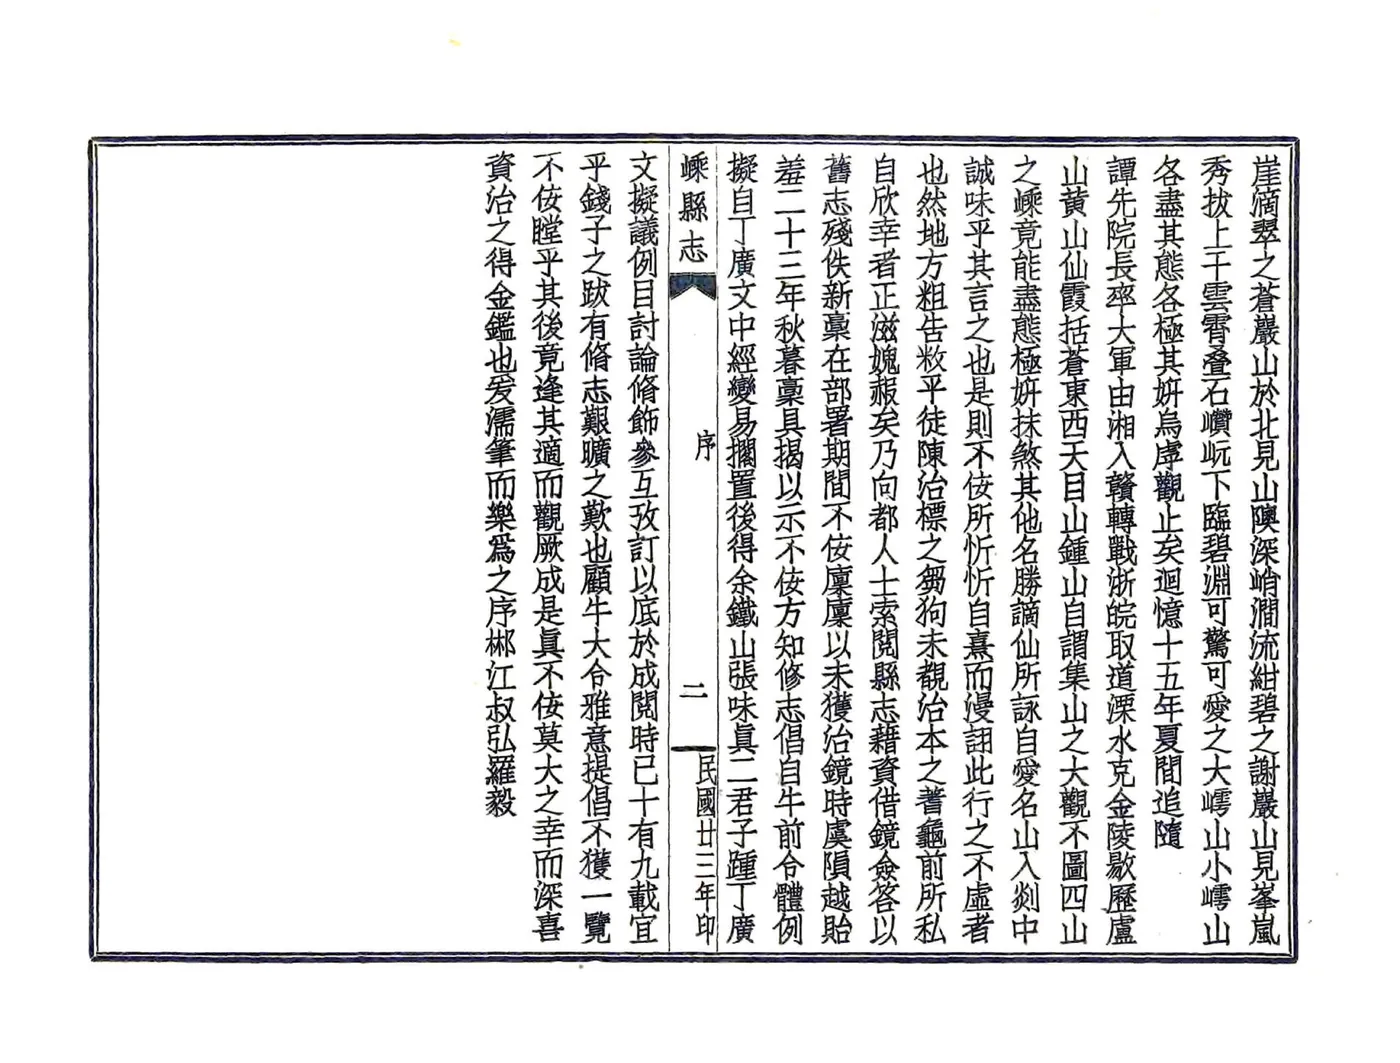 崖滴翠之蒼巖山於北見山隩深峭澗流紺碧之謝巖山見峯嵐
秀拔上干雲霄叠石巑岏下臨碧淵可驚可愛之大崿山小崿山
各盡其態各極其妍烏虖觀止矣迴憶十五年夏間追隨
譚先院長率大軍由湘入贛轉戰浙皖取道溧水克金陵歇歷盧
山黃山仙霞括蒼東西天目山鍾山自謂集山之大觀不圖四山
之嵊竟能盡態極妍抹煞其他名勝謫仙所詠自愛名山入剡中
誠味乎其言之也是則不侫所忻忻自熹而漫詡此行之不虛者
也然地方粗告敉平徒陳治標之芻狗未覩治本之蓍龜前所私
自欣幸者正滋媿赧矣乃向都人士索閱縣志藉資借鏡僉答以
舊志殘佚新稾在部署期間不侫廩廩以未獲治鏡時虞隕越貽
羞二十三年秋暮稾具揭以示不侫方知修志倡自牛前令體例
擬自丁廣文中經變易擱置後得余鐵山張味眞二君子踵丁廣
嵊縣志
序
二
民國廿三年印
文擬議例目討論脩飾參互攷訂以底於成閱時已十有九載宜
乎錢子之跋有脩志艱曠之歎也顧牛大令雅意提倡不獲一覽
不侫瞠乎其後竟逢其適而觀厥成是眞不侫莫大之幸而深喜
資治之得金鑑也爰濡筆而樂爲之序郴江叔弘羅毅